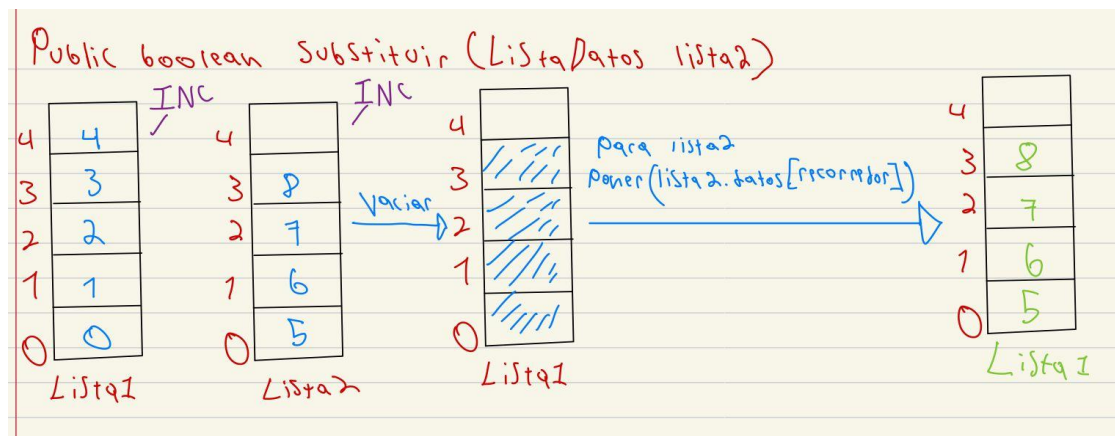 Public boolean Substituir (ListaDatos lista2)
INC
INC
4 4
3 3
2 2
1 1
0 0
Lista1
4
3 8
2 7
1 6
0 5
Lista2
Vaciar
4
3
2
1
0
Lista1
para lista2
poner(lista2.datos[recorredor])
4
3 8
2 7
1 6
0 5
Lista1